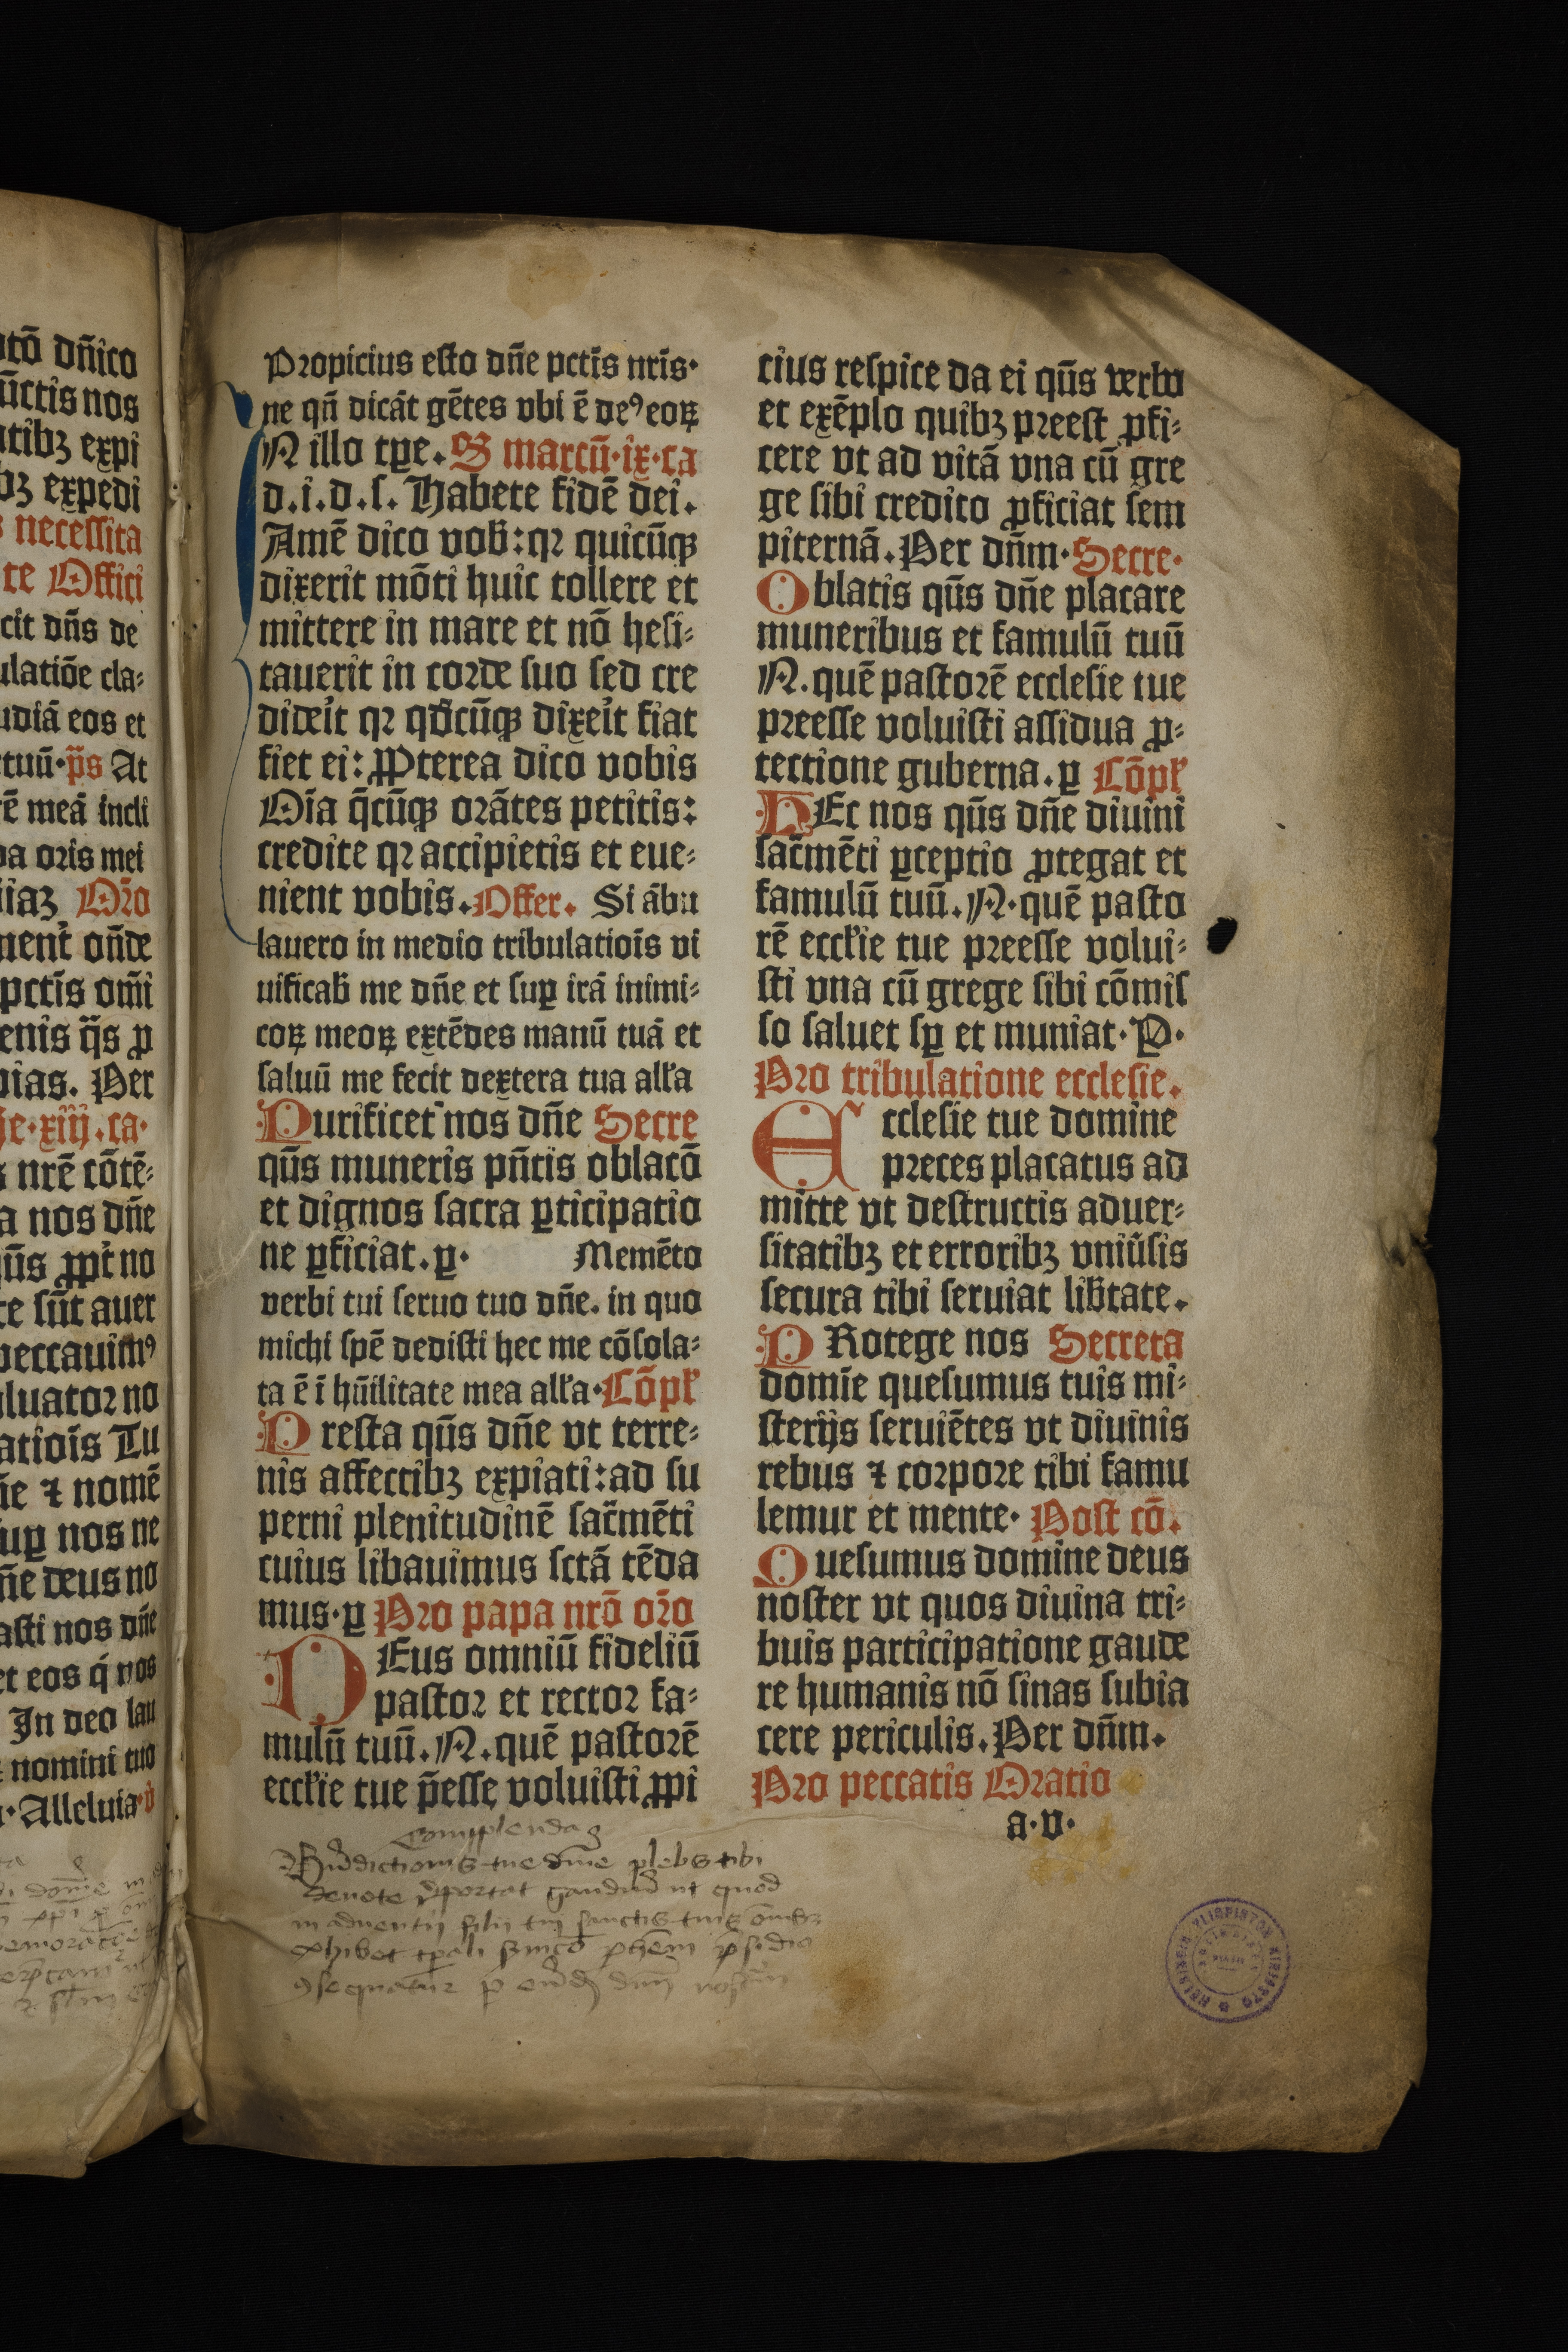 otō dn̄ico
ūctis nos
atibꝫ expi
bꝫ expedi
s necessita
te Offici
cit dn̄s de
ulatiōe cla⸗
udiā eos et
tuū·p̄s At
rē meā incli
ba oris mei
iiaꝫ Or̄o
nent on̄de
pctīs om̄i
enis q̄s ꝓ
pias. Per
e·xiij.ca·
s nrē cōtē⸗
a nos dn̄e
qūs ꝓpt no
te sūt auer
peccauimꝰ
aluator no
atiois Tu
n̄e ⁊ nomē
sup̱ nos ne
n̄e deus no
asti nos dn̄e
et eos q̄ nos
In deo lau
nomini tuo
Alleluia·v
Propicius esto dn̄e pctīs nrīs·
ne qn̄ dicāt gētes vbi ē deꝰ eoꝝ
N illo tꝑe. S marcū·ix·ca
d.i.d.s. Habete fidē dei.
Amē dico vob̄:qꝛ quicūqꝫ
dixerit mōti huic tollere et
mittere in mare et nō hesi⸗
tauerit in corde suo sed cre
dideit qꝛ qd̄cūqꝫ dixeit fiat
fiet ei: ꝓPterea dico vobis
Oīa q̄cūqꝫ orātes petitis:
credite qꝛ accipietis et eue⸗
nient vobis. Offer. Si ābu
lauero in medio tribulatiois vi
uificab̄ me dn̄e et suꝑ irā inimi⸗
coꝝ meoꝝ extēdes manū tuā et
saluū me fecit dextera tua all'a
Purificet nos dn̄e Secre
qūs muneris pn̄tis oblatō
et dignos sacra ꝑticipatio
ne ꝑficiat.ꝑ· Memēto
verbi tui seruo tuo dn̄e. in quo
michi spē dedisti hec me cōsola⸗
ta ē ī hūilitate mea all'a·Cōpl'
P resta qūs dn̄e vt terre⸗
nis affectibꝫ expiati:ad su
perni plenitudinē sac̄mēti
cuius libauimus sctā tēda
mus·ꝑ Pro papa nrō or̄o
D Eus omniū fideliū
pastor et rector fa⸗
mulū tuū.N.quē pastorē
eccl'ie tue p̄esse voluisti ꝓpi
cius respice da ei qūs verbo
et exēplo quibꝫ preest ꝓfi⸗
cere vt ad vitā vna cū gre
ge sibi credito ꝓficiat sem
piternā. Per dn̄m·Secre·
Oblatis qūs dn̄e placare
muneribus et famulū tuū
N.quē pastorē ecclesie tue
preesse voluisti assidua ꝓ⸗
tectione guberna.ꝑ Cōpl'
HEc nos qūs dn̄e diuini
sac̄mēti ꝑceptio ꝓtegat et
famulū tuū.N·quē pasto
rē eccl'ie tue preesse volui⸗
sti vna cū grege sibi cōmis
so saluet sꝑ et muniat·P·
Pro tribulatione ecclesie.
Ecclesie tue domine
preces placatus ad
mitte vt destructis aduer⸗
sitatibꝫ et erroribꝫ vniūsis
secura tibi seruiat lib̄tate.
P Rotege nos Secreta
domīe quesumus tuis mi⸗
sterijs seruiētes vt diuinis
rebus ⁊ corpore tibi famu
lemur et mente· Post cō.
Quesumus domine deus
noster vt quos diuina tri⸗
buis participatione gaude
re humanis nō sinas subia
cere periculis. Per dn̄m.
Pro peccatis Oratio
a·v·
Complenda
Bn̄dictionis tue dn̄e plebs tibi
deuote portat gaudiū ut quod
in aduentu filij tuj sanctis tuis